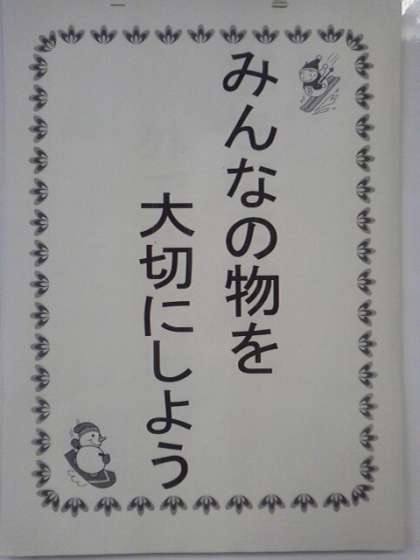 みんなの物を
大切にしよう